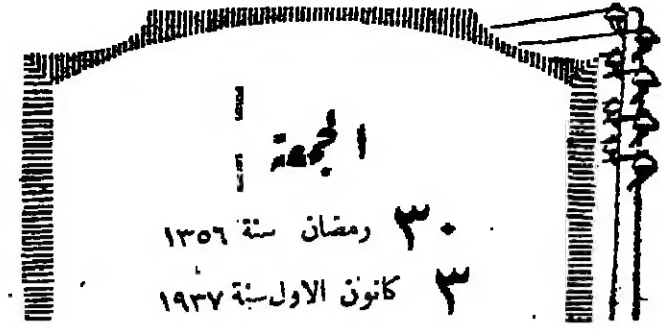 الجمعة
٣٠ رمضان سنة ١٣٥٦
٣ كانون الاول سنة ١٩٣٧